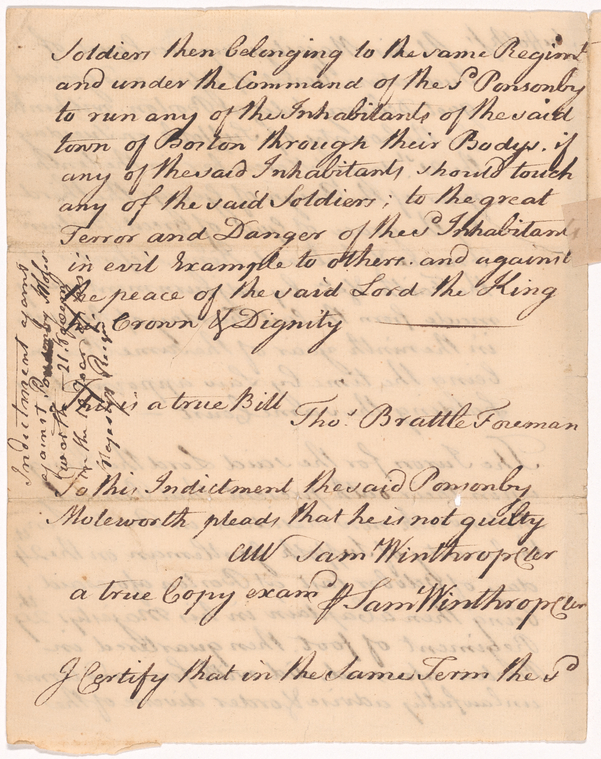 Soldiers then belonging to the same Regimt
and under the Command of the sd Ponsonby
to run any of the Inhabitants of the said
town of Boston through their Bodys. if
any of the said Inhabitants should touch
any of the said Soldiers; to the great
Terror and Danger of the sd Inhabitants
in evil Example to others. and against
the peace of the said Lord the King
his Crown & Dignity
This is a true Bill
Thos. Brattle Foreman
To this Indictment the said Ponsonby
Molesworth pleads that he is not guilty
Att Saml Winthrop Cler
a true Copy examd ⅌ Saml Winthrop Cler
I Certify that in the Same Term the sd
Indictment
against Ponsonby Moles
worth 21
in the Year
Majestys Reign